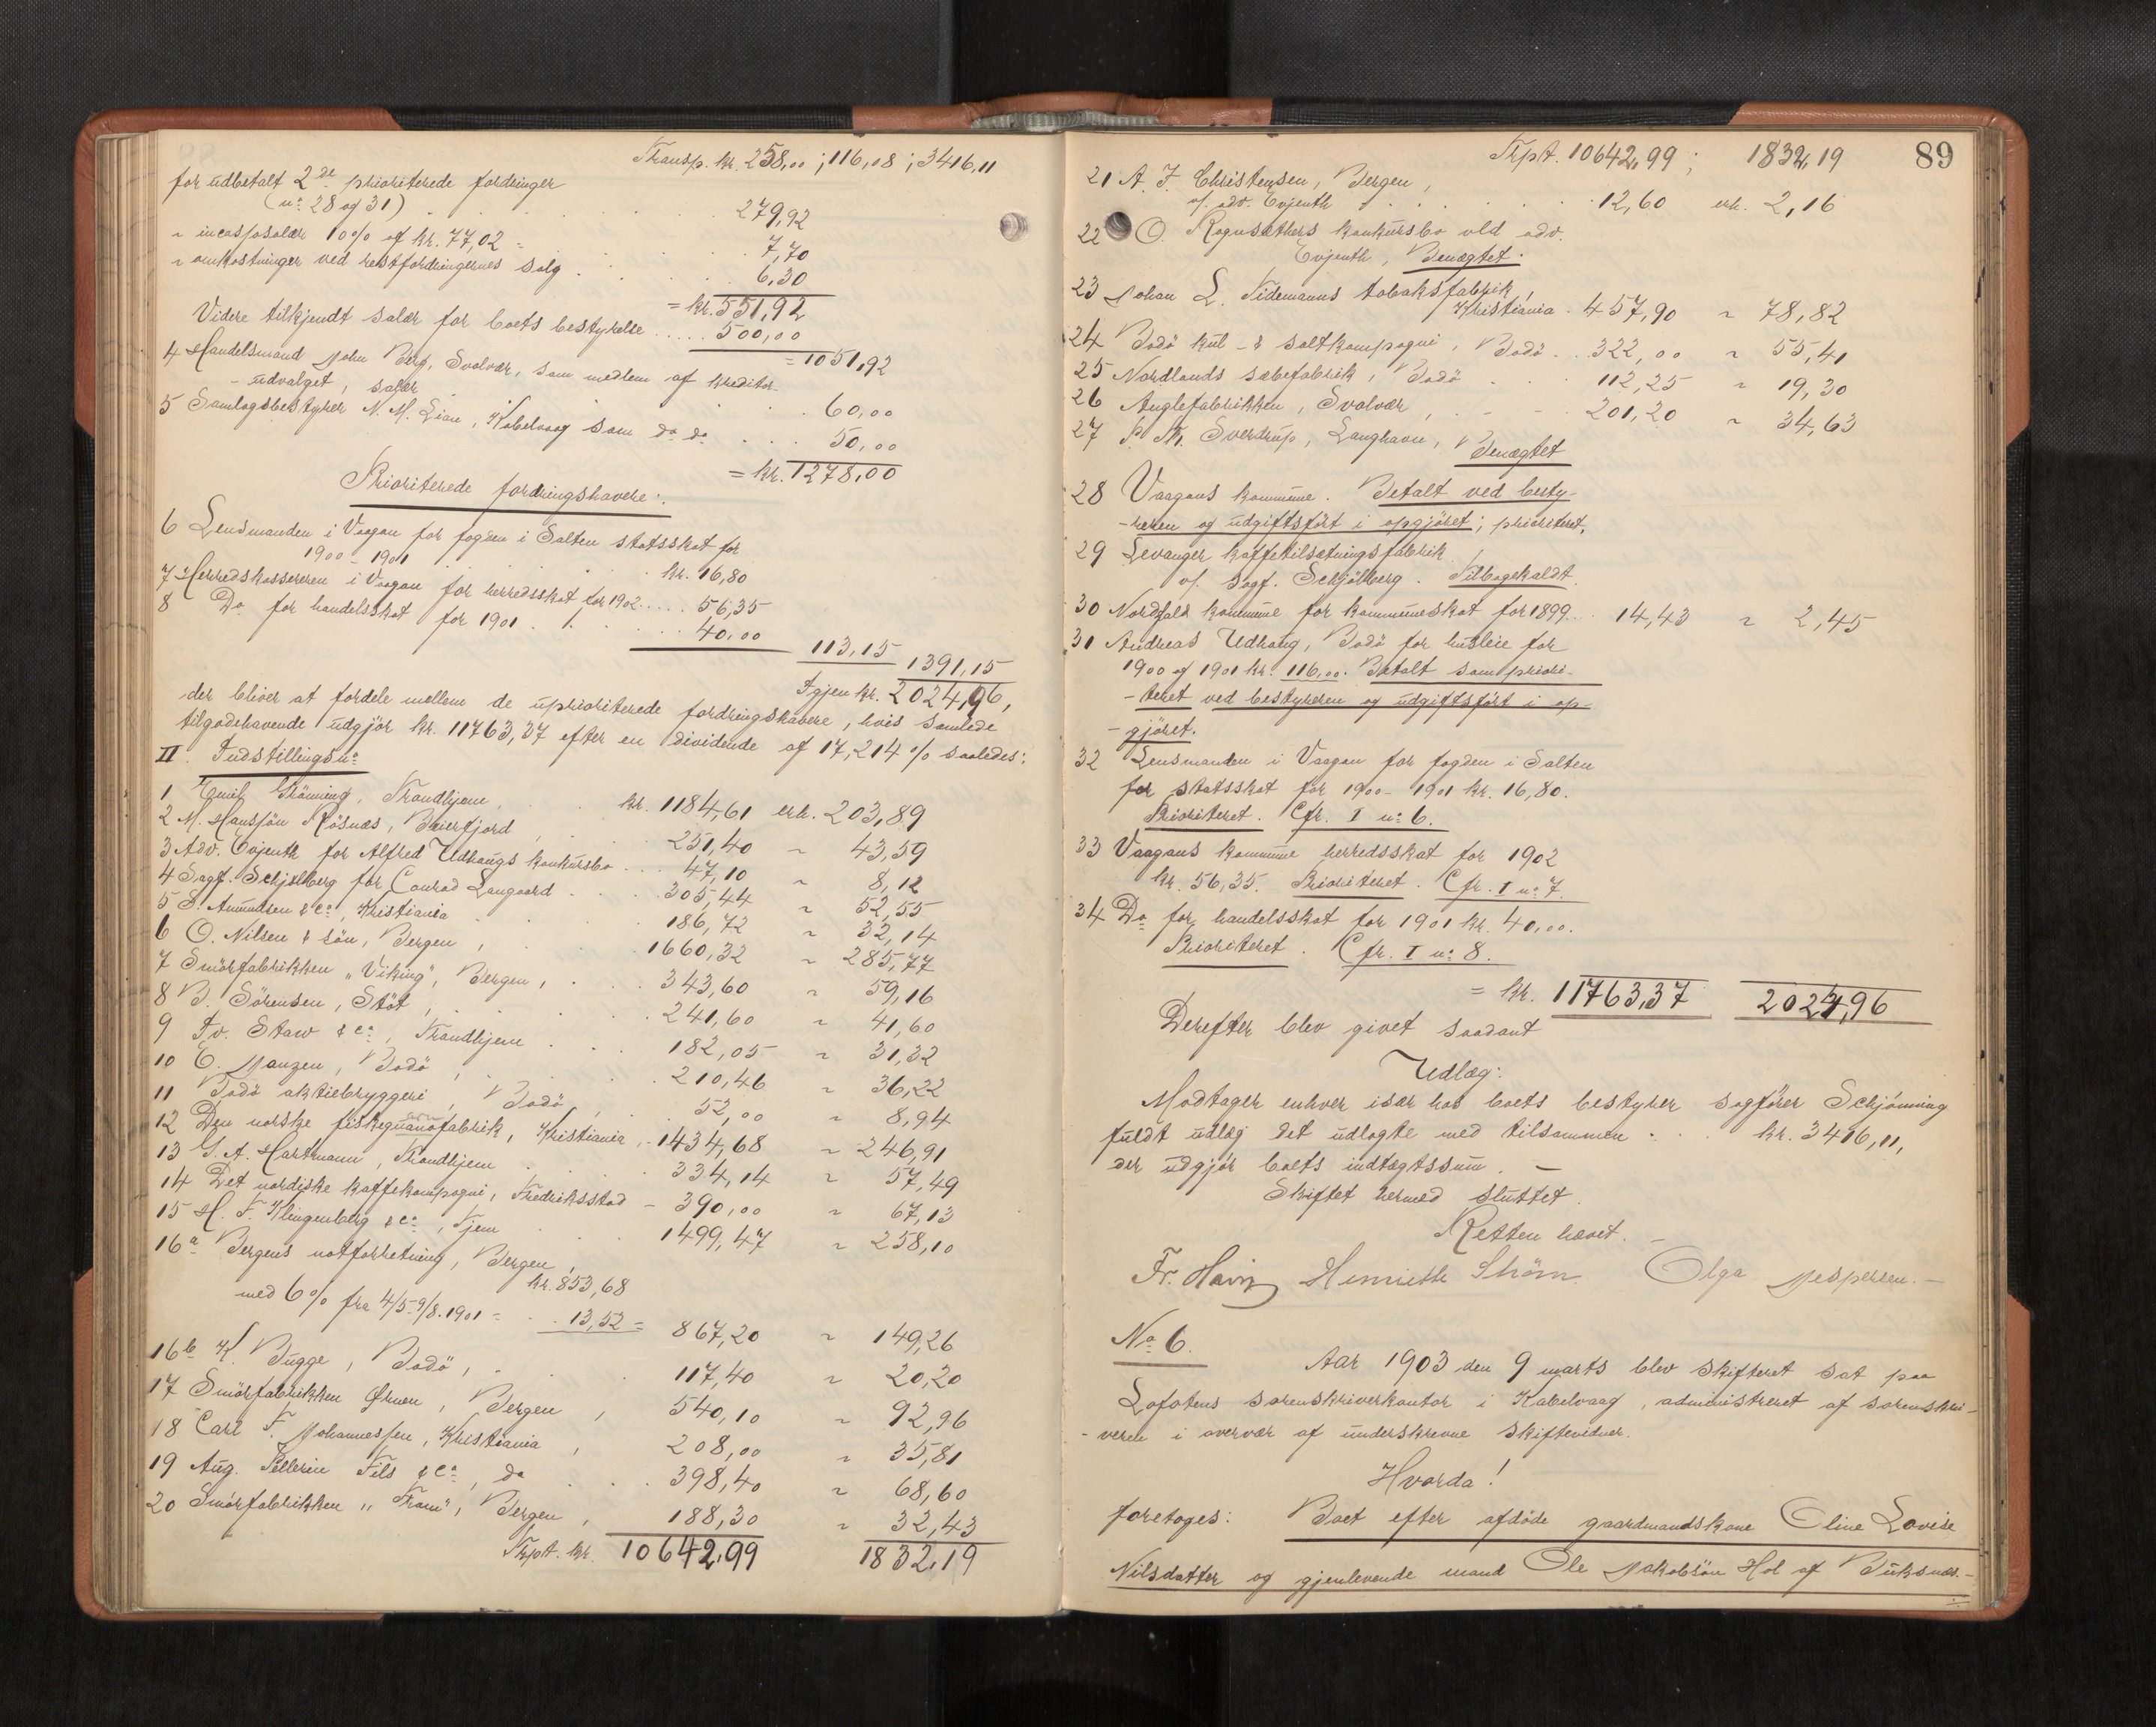 Transp. kr. 258,00; 116,08; 3416,11
for udbetalt 2de prioriterede fordringer
(no 28 og 31) 279,92
" incassosalær 10% af kr. 77,02 = 7,70
" omkostninger ved restfordringernes salg 6,30
= kr. 551,92
Videre tilkjendt salær for boets bestyrelse 500,00
= 1051,92
4 Handelsmand John Berg, Svolvær, som medlem af kreditor-
-udvalget, salær 60,00
5 Samlagsbestyrer N. M. Lian, Kabelvaag som do do 50,00
= kr. 1278,00
Prioriterede fordringshavere:
6 Lensmanden i Vaagan for fogden i Salten statsskat for
1900-1901 kr. 16,80
7 Herredskassereren i Vaagan for herredsskat for 1902 56,35
8 Do for handelsskat for 1901 40,00
113,15 1391,15
Igjen kr. 2024,96,
der bliver at fordele mellem de uprioriterede fordringshavere, hvis samlede
tilgodehavende udgjør kr. 11763,37 efter en dividende af 17,214% saaledes:
II. Indstillingsno
1 Emil Grönning, Trondhjem kr. 1184,61 erh. 203,89
2 M. Hanssön Rösnæs, Beierfjord, 251,40 " 43,59
3 Adv. Evjenth for Alfred Udhaugs konkursbo 47,10 " 8,12
4 Sagf. Schjelberg for Conrad Langaard 305,44 " 52,55
5 S. Amundsen & Co, Kristiania 186,72 " 32,14
6 O. Nilsen & sön, Bergen, 1660,32 " 285,77
7 Smörfabrikken "Viking", Bergen, 343,60 " 59,16
8 B. Sörensen, Stöt, 241,60 " 41,60
9 Iv. Staw & Co, Trondhjem 182,05 " 31,32
10 E. Janzen, Bodö, 210,46 " 36,22
11 Bodö aktiebryggeri, Bodö, 52,00 " 8,94
12 Den norske fiskeguanofabrik, Kristiania 1434,68 " 246,91
13 G. A. Hartmann, Trondhjem 334,14 " 57,49
14 Det nordiske kaffekompagni, Fredriksstad 390,00 " 67,13
15 H. F. Klingenberg & Co, Tjem 1499,47 " 258,10
16a Bergens notforretning, Bergen,
kr. 853,68
med 6% fra 4/5-9/8.1901 = 13,52 = 867,20 " 149,26
16b K. Bugge, Bodö, 117,40 " 20,20
17 Smörfabrikken Örnen, Bergen, 540,10 " 92,96
18 Carl F. Johannessen, Kristiania, 208,00 " 35,81
19 Aug. Pellerin Fils & Co, do 398,40 " 68,60
20 Smörfabrikken "Fram", Bergen, 188,30 " 32,43
Trpt. kr. 10642,99 1832,19
89
Trpt. 10642,99; 1832,19
21 A. F. Christensen, Bergen,
v/. adv. Evjenth 12,60 erh. 2,16
22 O. Rognsethers konkursbo vld adv.
Evjenth, Benægtet.
23 Johan L. Tidemanns tobaksfabrik,
Kristiania 457,90 " 78,82
24 Bodö kul- & saltkompagni, Bodö 322,00 " 55,41
25 Nordlands sæbefabrik, Bodö 112,25 " 19,30
26 Anglefabrikken, Svolvær, 201,20 " 34,63
27 P. M. Sverdrup, Langhavn, Benægtet
28 Vaagans kommune. Betalt ved besty-
-reren og udgiftsført i opgjöret; prioriteret.
29 Levanger kaffetilsætningsfabrik
v/. sagf. Schjölberg. Tilbagekaldt.
30 Nordfold kommune for kommuneskat for 1899 14,43 " 2,45
31 Andreas Udhaug, Bodö for husleie for
1900 og 1901 kr. 116,00. Betalt som priori-
-teret ved bestyreren og udgiftsfört i op-
-gjöret.
32 Lensmanden i Vaagan for fogden i Salten
for statsskat for 1900-1901 kr. 16,80.
Prioriteret. Cfr. I no 6.
33 Vaagans kommune herredsskat for 1902
kr. 56,35. Prioriteret. Cfr. I no 7.
34 Do for handelsskat for 1901 kr. 40,00.
Prioriteret. Cfr. I no 8.
= kr. 11763,37 2024,96
Derefter blev givet saadant
Udlæg:
Modtager enhver især hos boets bestyrer sagfører Schjönning
fuldt udlæg det udlagte med tilsammen kr. 3416,11,
der udgjör boets indtægtssum. —
Skiftet hermed sluttet.
Retten hævet. —
Fr. Hain Henriette Ström. Olga Jespersen. —
No 6.
Aar 1903 den 9 marts blev skifteret sat paa
Lofotens sorenskriverkontor i Kabelvaag, administreret af sorenskri-
-veren i overvær af underskrevne skiftevidner.
Hvorda!
foretoges: Boet efter afdöde gaardmandskone Oline Lovise
Nilsdatter og gjenlevende mand Ole Jakobsön Hol af Buksnæs.-